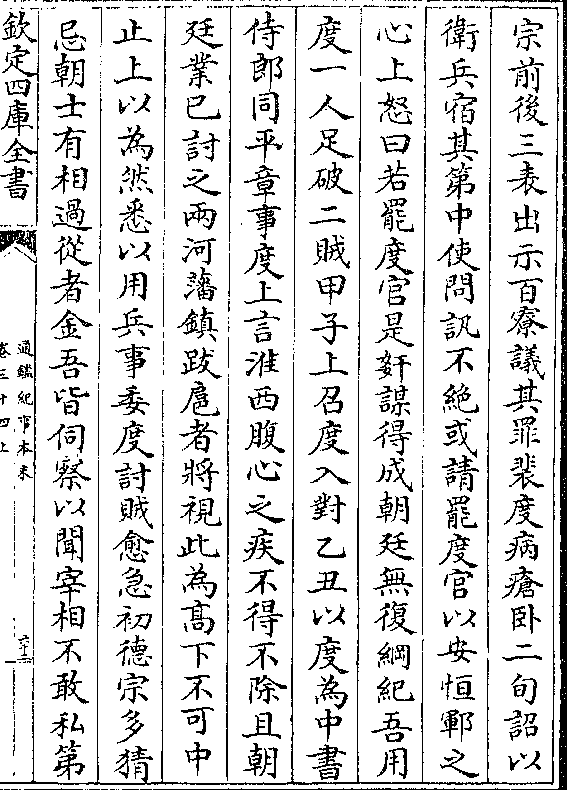 宗前後三表出示百寮議其罪裴度病瘡卧二旬詔以
衛兵宿其第中使問訊不絶或請罷度官以安恒鄆之
心上怒曰若罷度官是奸謀得成朝廷無復綱紀吾用
度一人足破二賊甲子上召度入對乙丑以度為中書
侍郎同平章事度上言淮西腹心之疾不得不除且朝
廷業已討之兩河藩鎮跋扈者將視此為髙下不可中
止上以為然悉以用兵事委度討賊愈急初德宗多猜
忌朝士有相過從者金吾皆伺察以聞宰相不敢私第
欽定四庫全書
通鑑紀事本末
卷三十四上